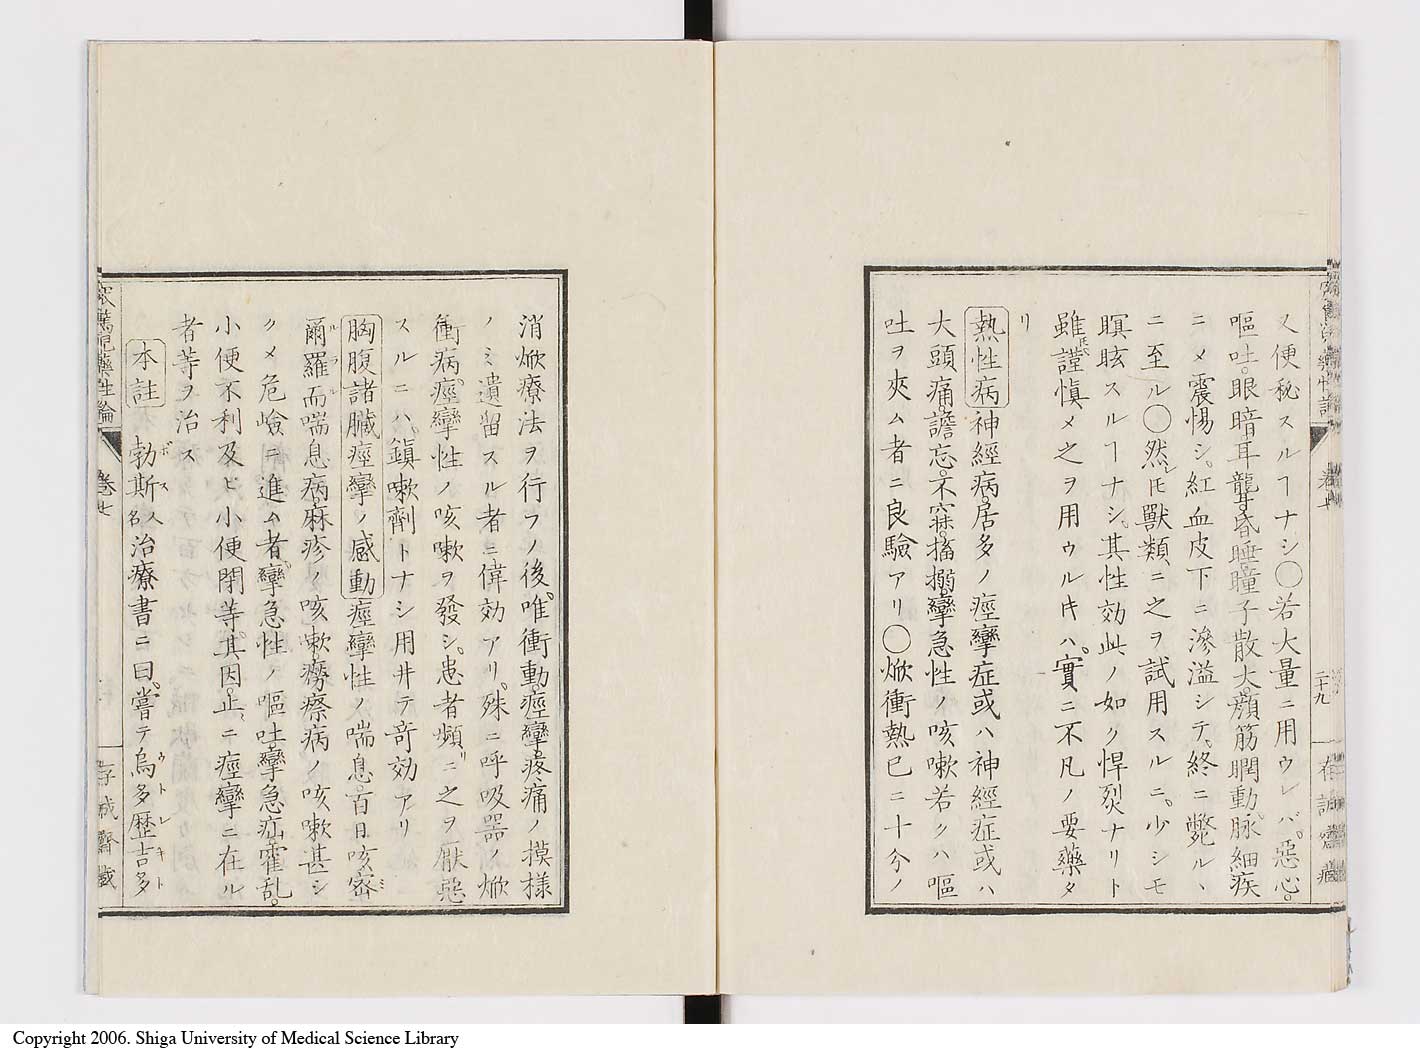 又便秘スルヿナシ〇若大量ニ用ウレバ。惡心。
嘔吐。眼暗耳聾。昏睡瞳子散大。顔筋瞤動。脉細疾
ニメ震惕シ。紅血皮下ニ滲溢シテ。終ニ斃ル丶
ニ至ル〇然レ𪜈獸類ニ之ヲ試用スルニ。少シモ
瞑眩スルヿナシ。其性効此ノ如ク悍烈ナリト
雖𪜈。謹慎メ之ヲ用ウルキハ。實ニ不凡ノ要藥タ
リ
熱性病神經病。居多ノ痙攣症或ハ神經症或ハ
大頭痛。譫忘。不寐。搐搦。攣急性ノ咳嗽若クハ嘔
吐ヲ夾ム者ニ良驗アリ〇焮衝熱已ニ十分ノ
消焮療法ヲ行フノ後。唯衝動痙攣。疼痛ノ摸樣
ノミ遺留スル者ニ偉効アリ。殊ニ呼吸器ノ焮
衝病。痙攣性ノ咳嗽ヲ發シ。患者頻ニ之ヲ厭惡
スルニハ。鎮嗽劑トナシ用井テ竒効アリ
胸腹諸臟痙攣ノ感動痙攣性ノ喘息。百日咳。宻
爾羅而喘息病。麻疹ノ咳嗽。癆瘵病ノ咳嗽甚シ
クメ危嶮ニ進ム者。攣急性ノ嘔吐。攣急疝。霍乱。
小便不利及ヒ小便閉等。其因。止ニ痙攣ニ在ル
者等ヲ治ス
本註 勃斯人名治療書ニ曰。嘗テ烏多歴吉多
卷七
二十九